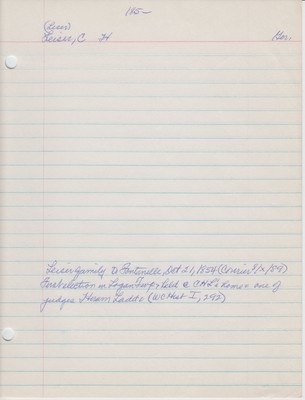 185-
(Leser)
Leiser, C H
Leiser family to Fontinelle, Oct 21, 1854 (Courier
First election in Logan Twp held @ CHL's home & one of
judges Hiram Ladd (WC Hist I, 292)